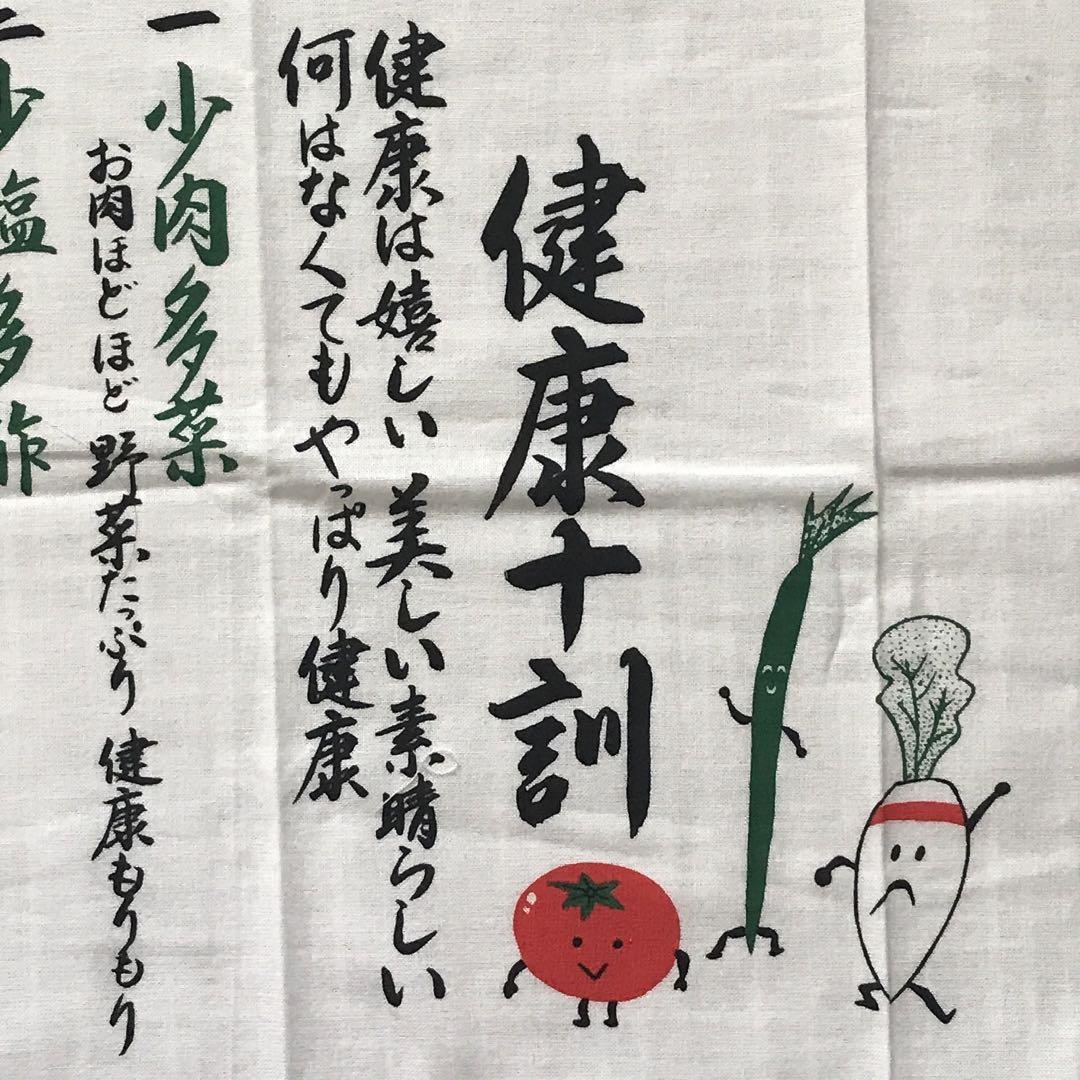 健康十訓
健康は嬉しい 美しい素晴らしい
何はなくてもやっぱり健康
一 少肉多菜
お肉ほどほど 野菜たっぷり 健康もりもり
二 少塩多酢